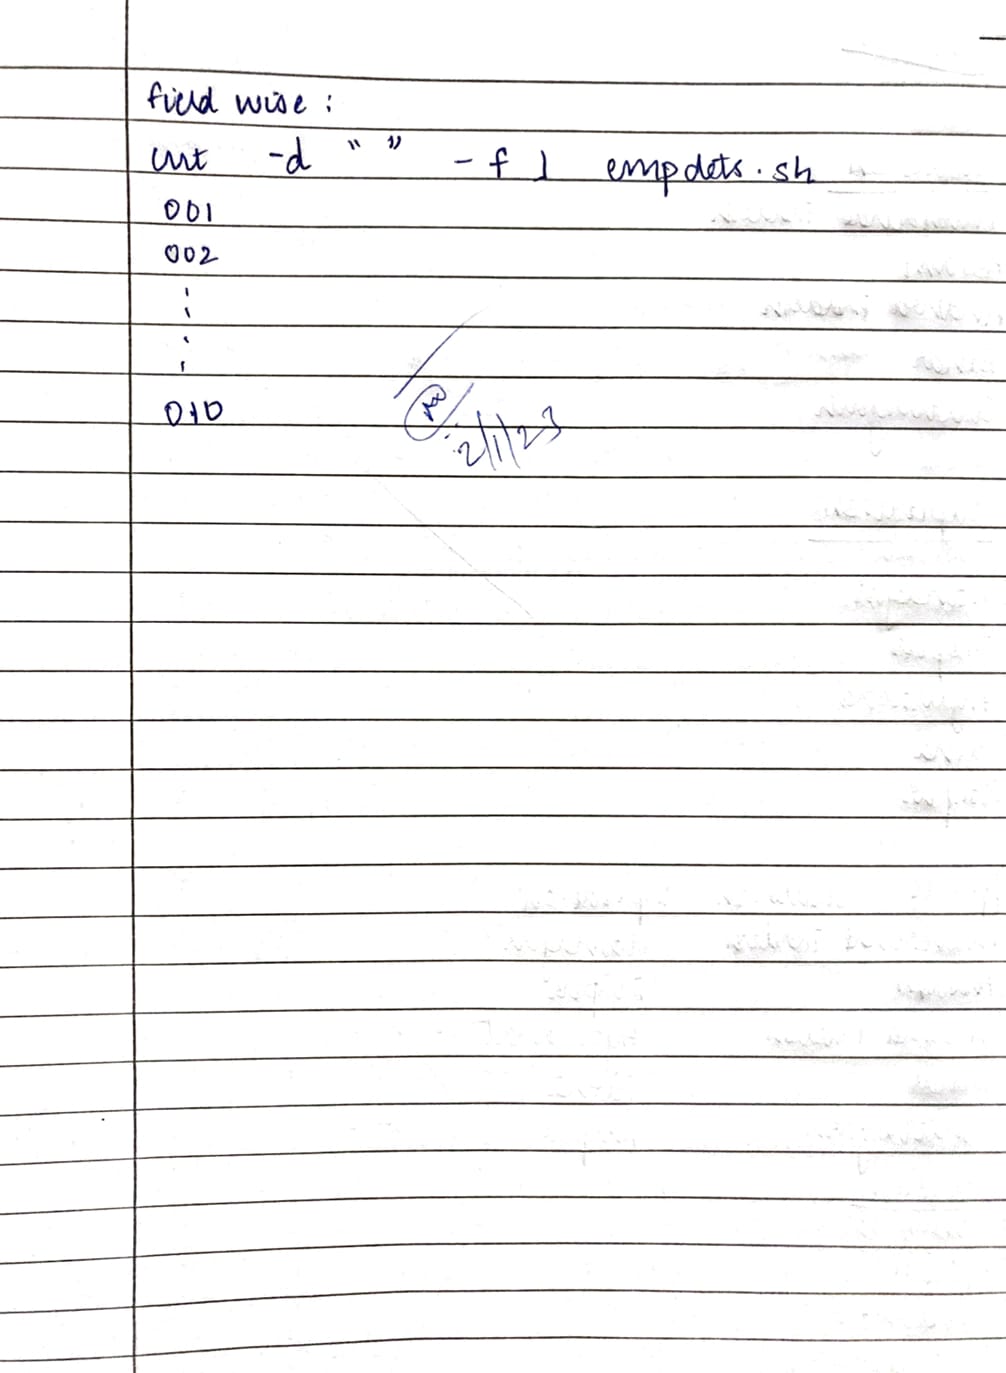 field wise :
cut -d “ ” -f 1 empdets.sh
001
002
010
2/1/23